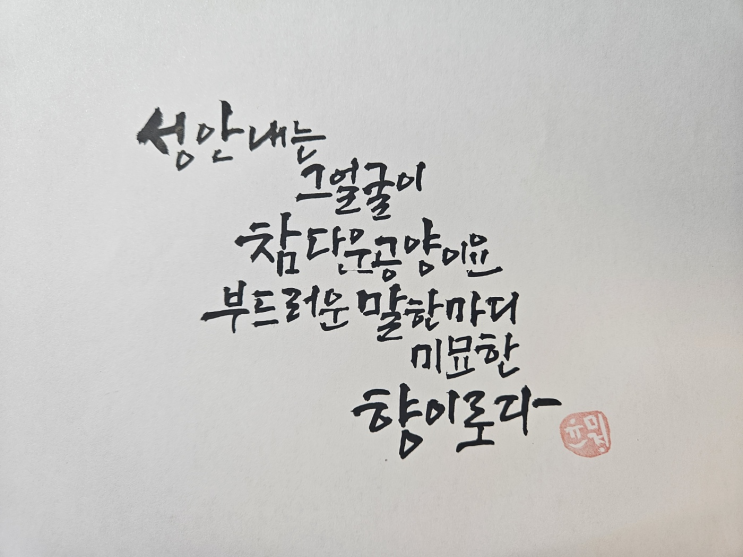 성 안 내는
그 얼굴이
참다운 공양이요
부드러운 말 한마디
미묘한
향이로다